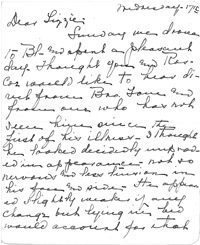 Wednesday - 17th
Dear Lizzie:
Sunday we drove
to Bl and spent a pleasant
day. Thought you and
would like to hear di-
rect from Bro. and
from one who has not
seen him since the
first of his illness. I thought
he looked decidedly improv-
ed in appearance. not so
nervous and less tension in
his face and voice. He appear-
ed slightly weaker if any
change but lying in bed
would account for that